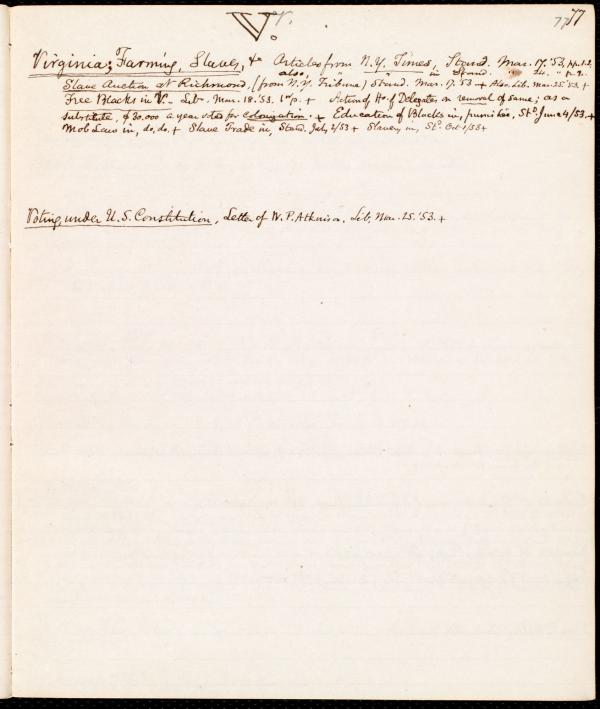 V. v. 77 77
Virginia; Farming, Slaves, &c Articles from N.Y. Times, Stand. Mar. 17.'53, pp. 1.2.
also, " " in Stand. " 24. " p. 2.
Slave Auction at Richmond, (from N.Y. Tribune) Stand. Mar. 17. 53 + Also, Lib. Mar. 25. 53. +
Free Blacks in V. Lib. Mar. 18. '53. 1st p. + Action of Ho. of Delegates on removal of same; as a
substitute, $30.000 a year voted for colonization. + Education of Blacks in, punishes, Std. June 4/53. +
Mob Law in, do, do. + Slave Trade in, Stand. July 2/53 + Slavery in, St. Oct 1/53 +
Voting, under U.S. Constitution, Letter of W. P. Atkinson, Lib. Mar. 25. '53. +